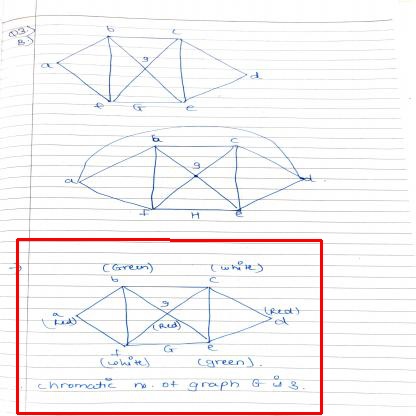 Q3.)
B.)
b c
a g d
f G e
b c
a g d.
f H e
(Green) (white)
b c
a g (Red)
(Red) (Red) d
f G e
(white) (green).
chromatic no. of graph G is 3.